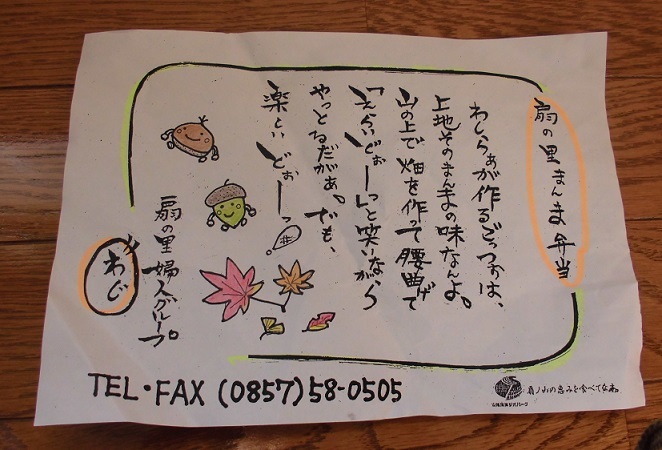 扇の里まんま弁当
わしらぁが作るごっつぉは、
土地そのまんまの味なんよ。
山の上で畑を作って腰曲げて
「えらいどぉーしっと笑いながら
やっとるだがぁ。でも、
楽しいどぉーっ
扇の里婦人グループ
わじ
TEL・FAX (0857)58-0505
扇ノ山の恵みを食べてなぁ